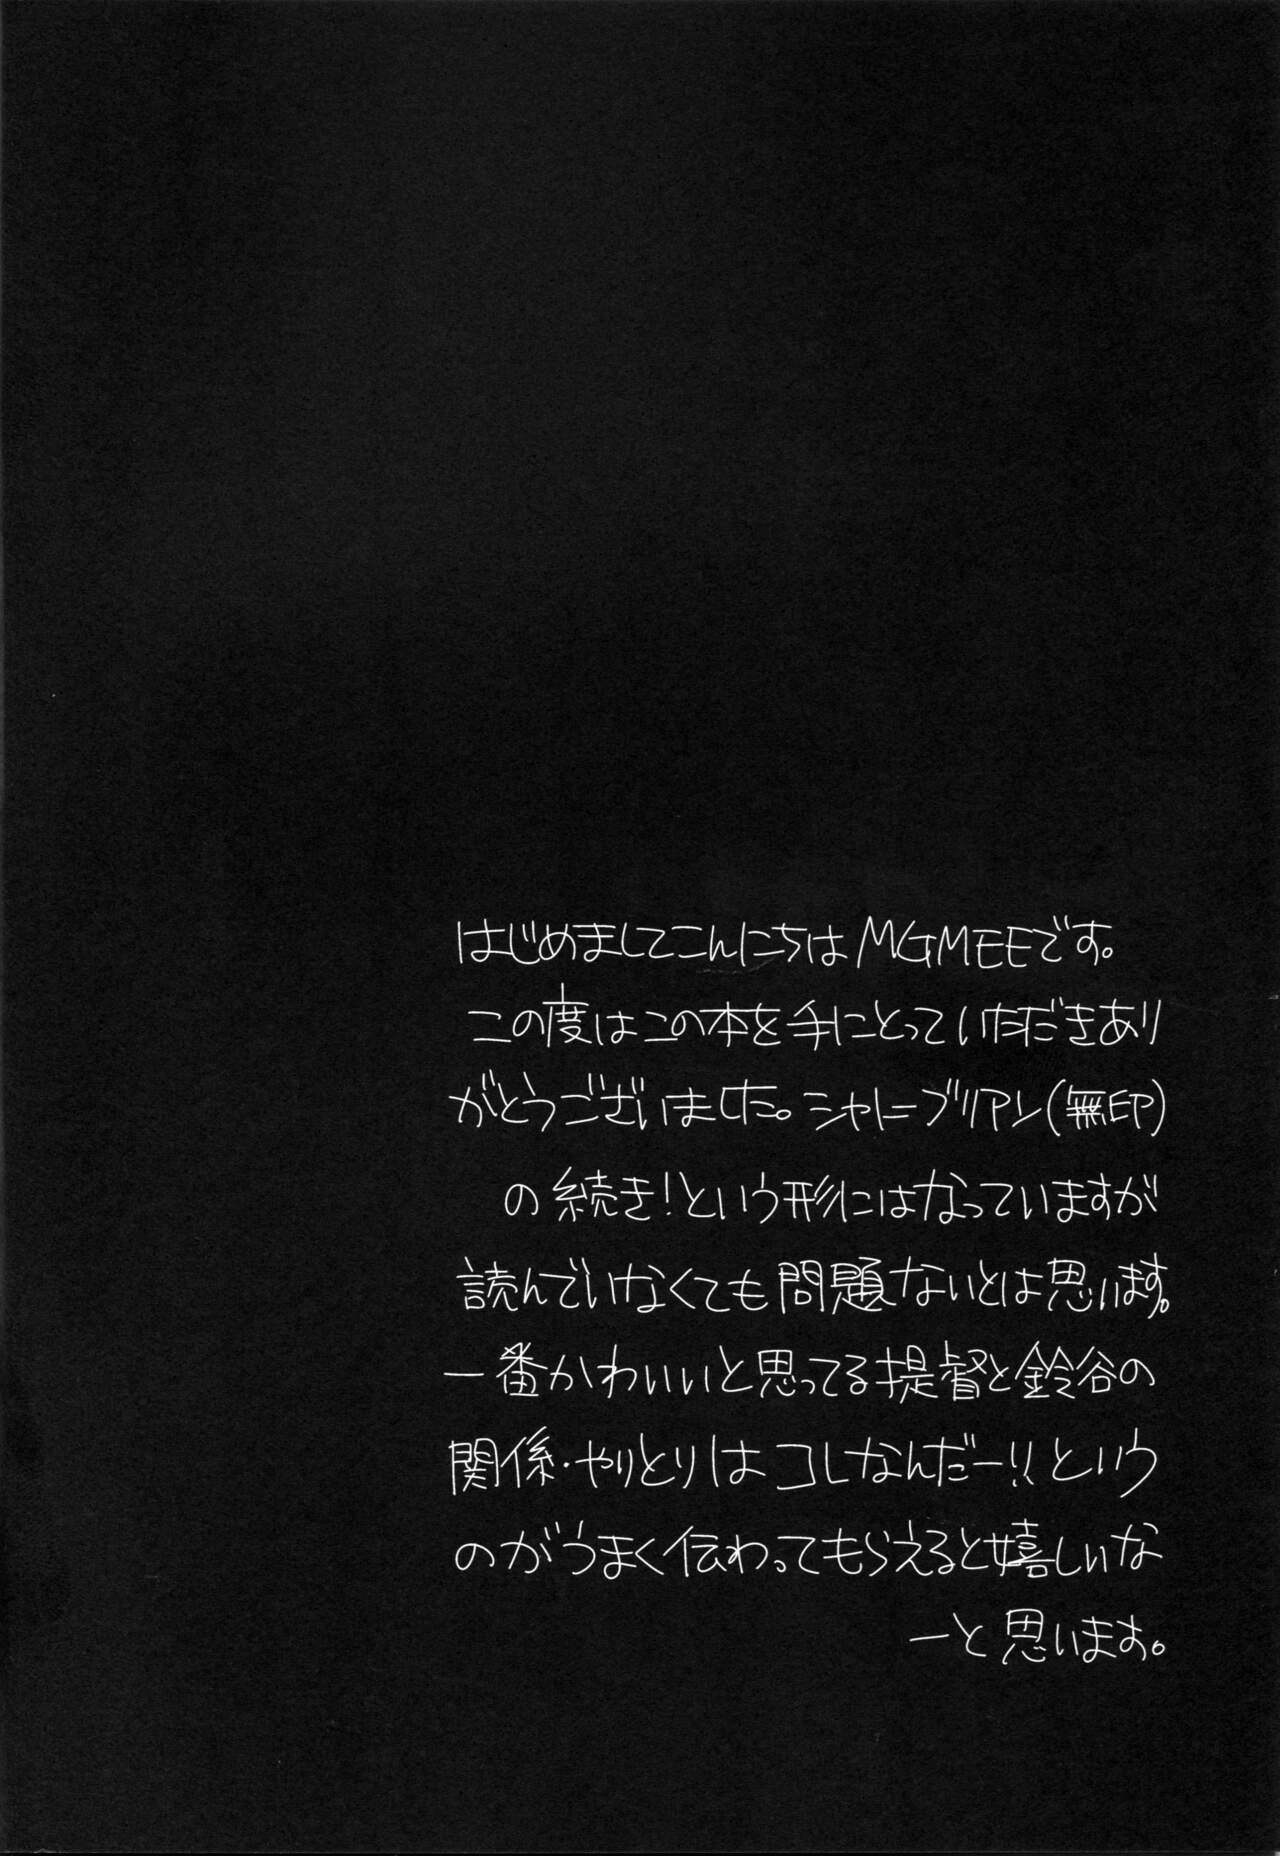 はじめましてこんにちはMGMEEです。
この度はこの本を手にとっていただきあり
がとうございました。シャトーブリアン(無印)
の続き!という形にはなっていますが
読んでいなくても問題ないとは思います。
一番かわいいと思ってる提督と鈴谷の
関係・やりとりはコレなんだー!!という
のがうまく伝わってもらえると嬉しいな
ーと思います。